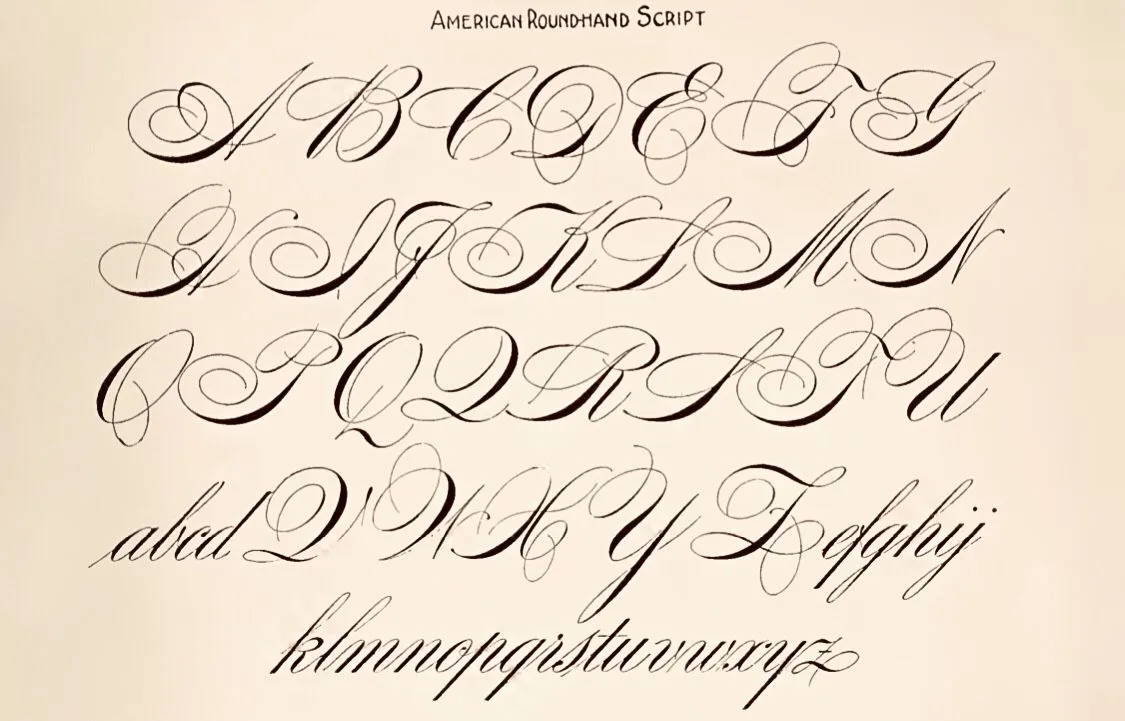 AMERICAN ROUND-HAND SCRIPT
A B C D E F G
H I J K L M N
O P Q Q R S T U
abcd V W X Y Z efghij
klmnopqrstuvwxyz